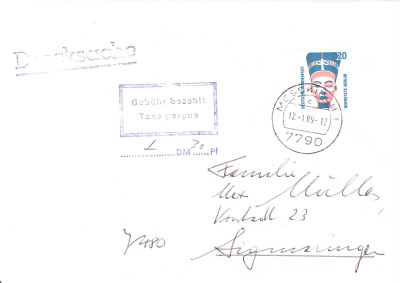 Drucksache
20
DEUTSCHE BUNDESPOST
NOFRETETE BERLIN
MESSKIRCH 1
c
12.-1.89-12
7790
Gebühr bezahlt
Taxe perçue
1 DM 70 Pf
Familie
Max Müller
23
7480 Sigmaringen